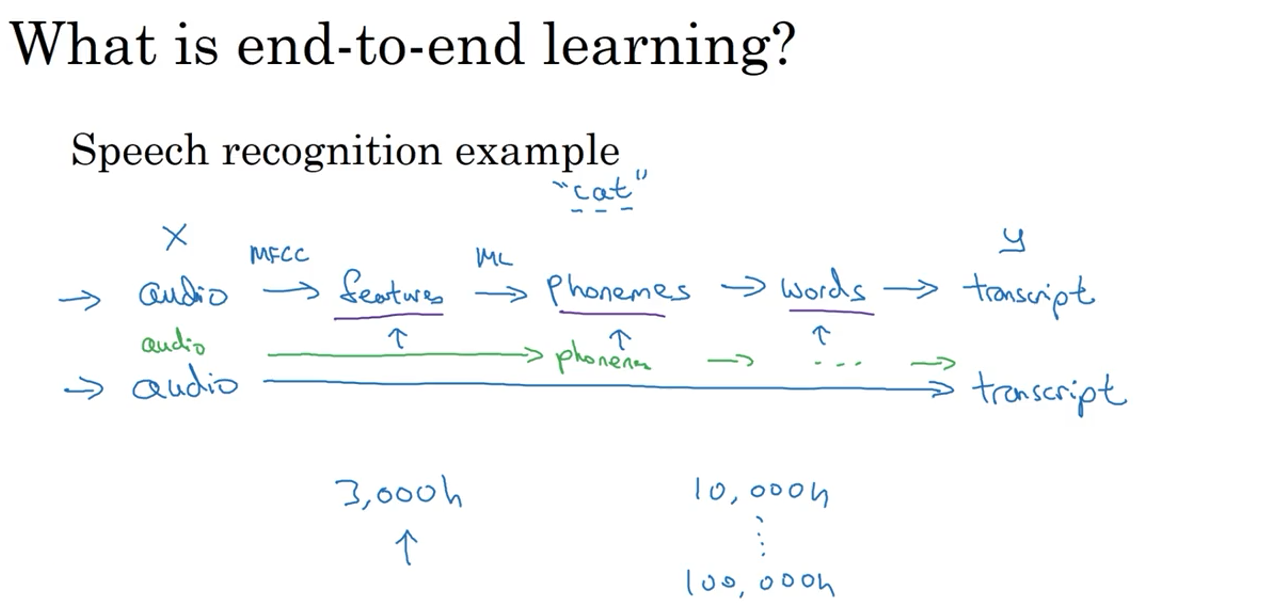 What is end-to-end learning?
Speech recognition example
"cat"
X MFCC ML y
→ audio → features → phonemes → words → transcript
audio → phonemes → ... →
→ audio → transcript
3,000h 10,000h
↑ ⋮
100,000h